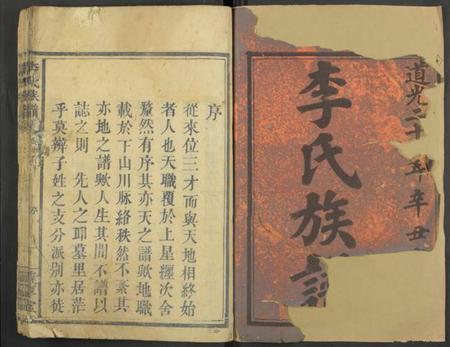 道光二十 年辛丑
李氏族譜
序
從來位三才而與天地相終始
者人也天職覆於上星纏次舍
釐然有序其亦天之譜歟地職
載於下山川脉絡秩然不紊其
亦地之譜歟人生其間不譜以
誌之則 先人之叩墓里居茫
乎莫辨子姓之支分派别亦徒
李氏族譜
序